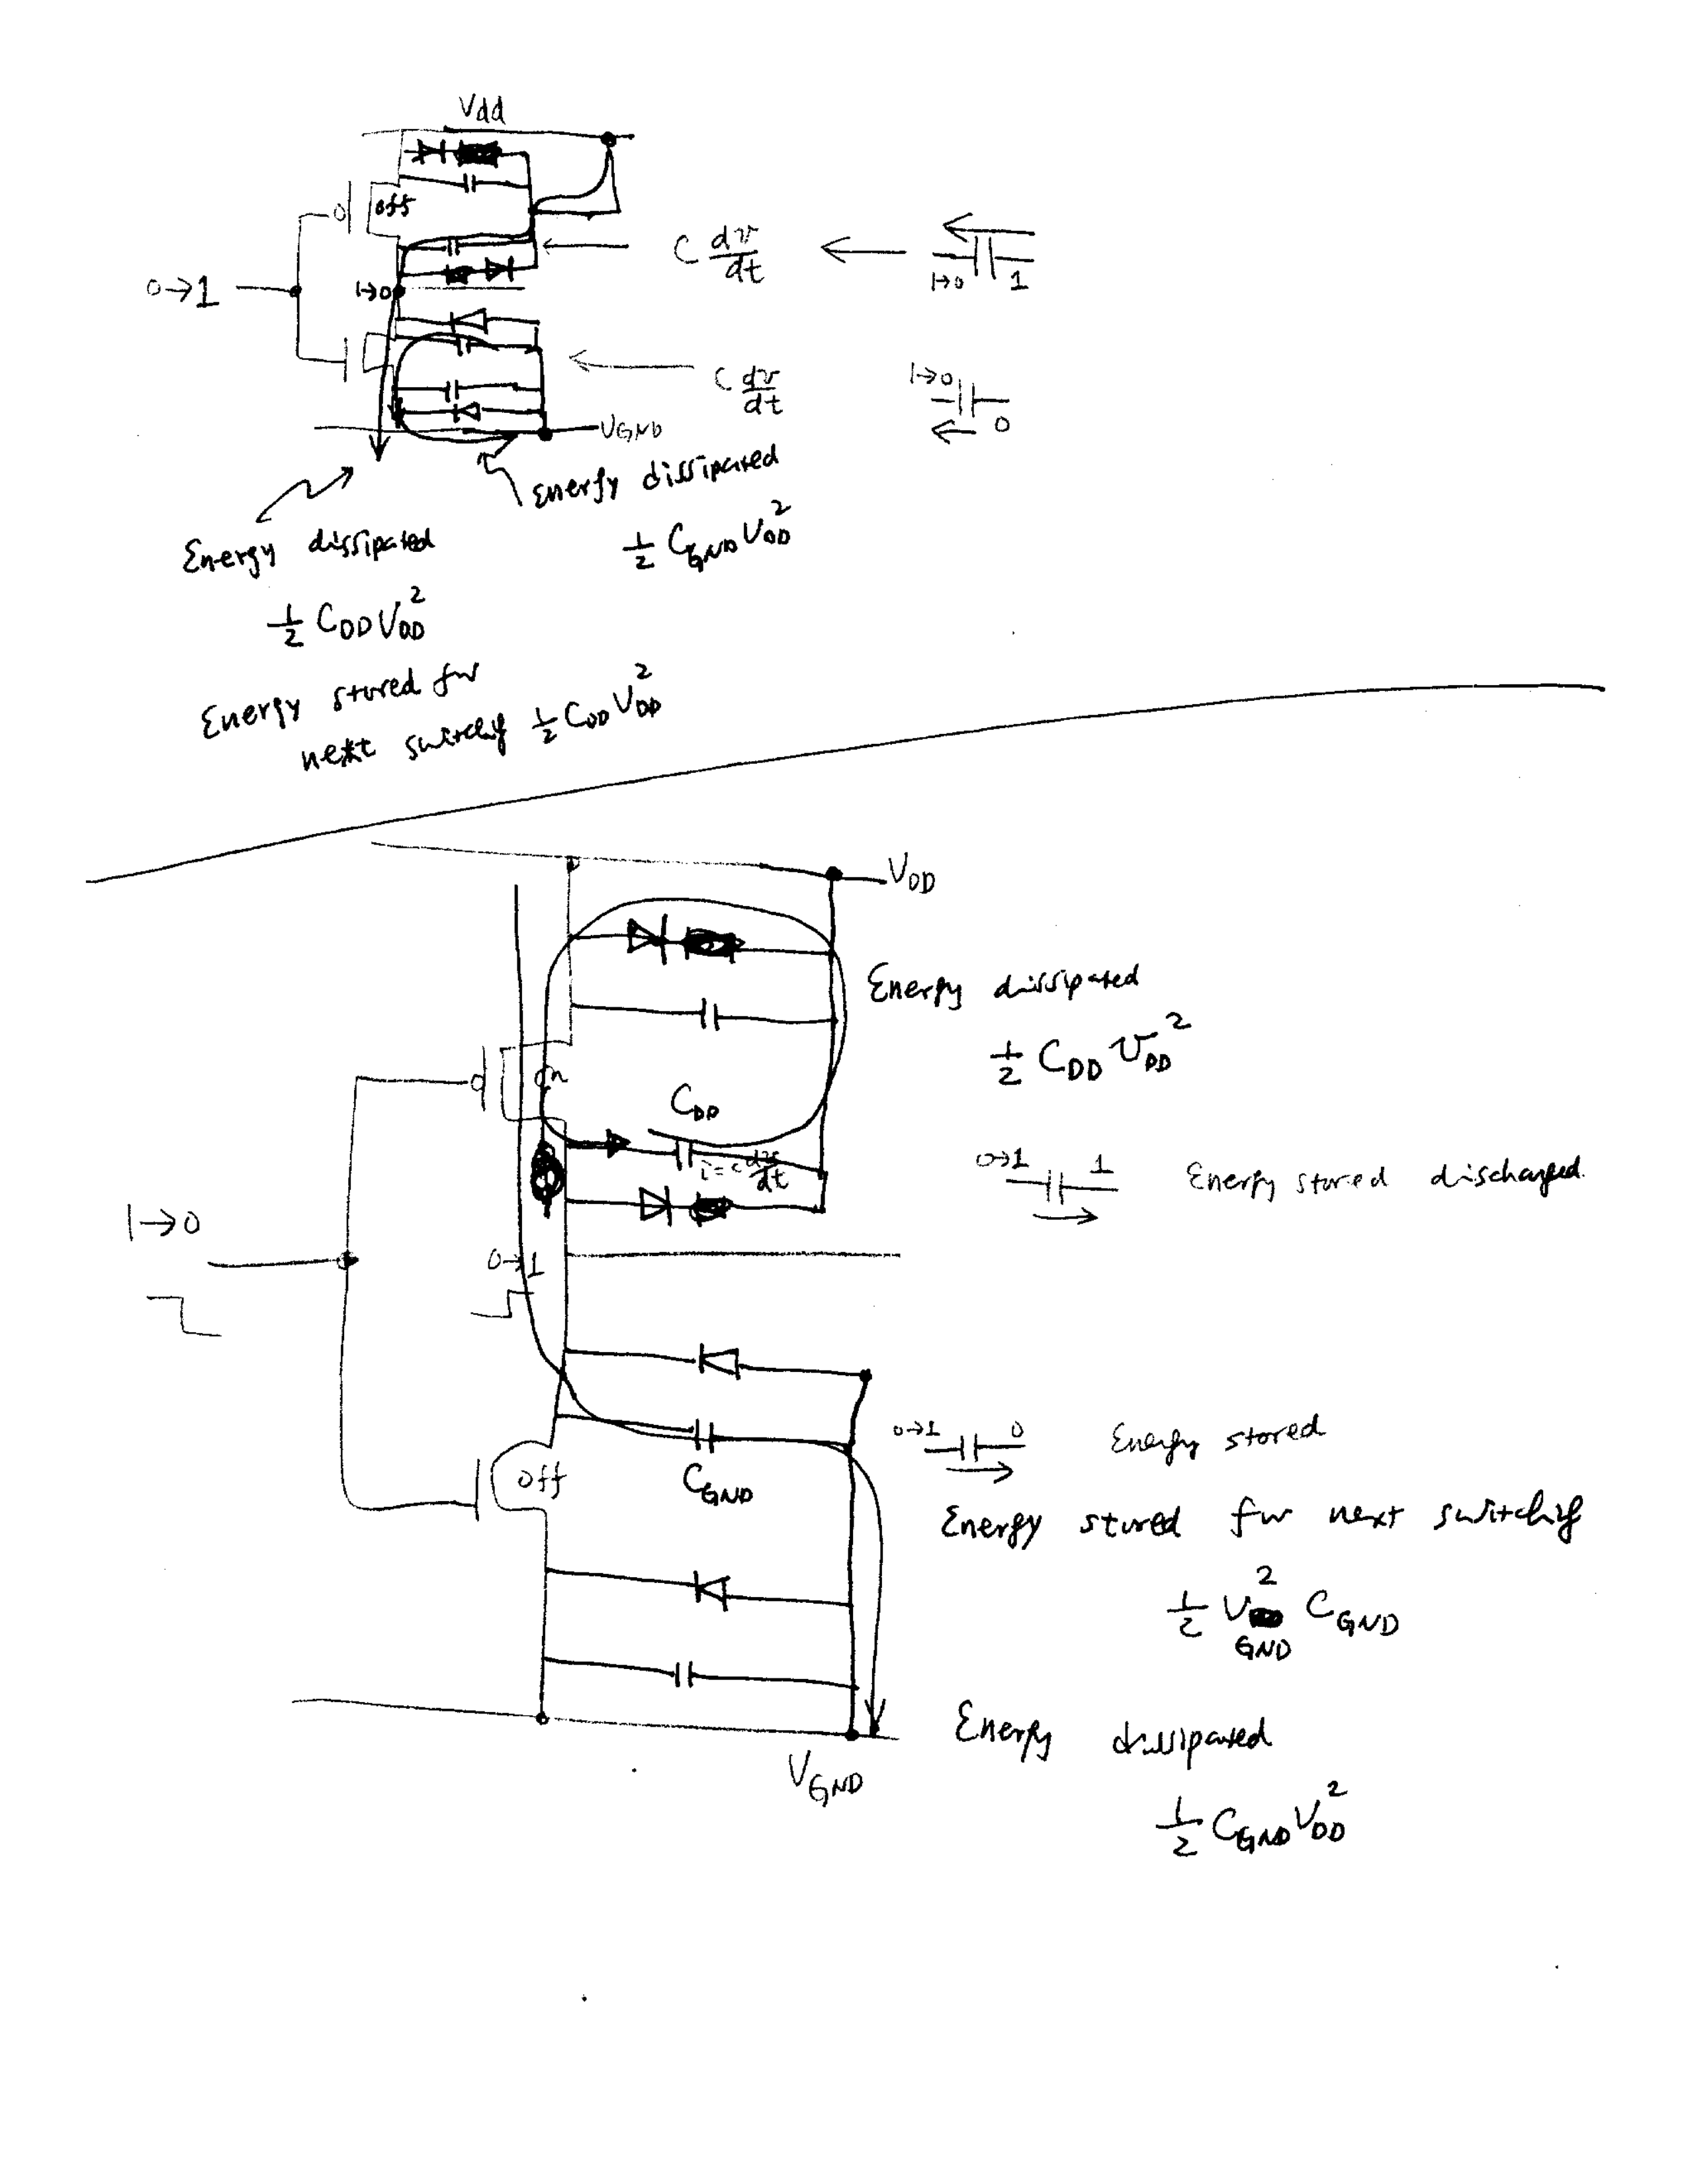 Vdd
off
0→1
1→0
C dv/dt
1→0 1
C dv/dt
1→0
0
VGND
Energy dissipated
½ CGND VDD²
Energy dissipated
½ CDD VDD²
Energy stored for
next switching ½ CDD VDD²
VDD
Energy dissipated
½ CDD VDD²
on
CDD
i=c dv/dt
0→1 1
Energy stored discharged.
1→0
0→1
0→1 0
Energy stored
off
CGND
Energy stored for next switching
½ V GND² CGND
Energy dissipated
VGND
½ CGND VDD²